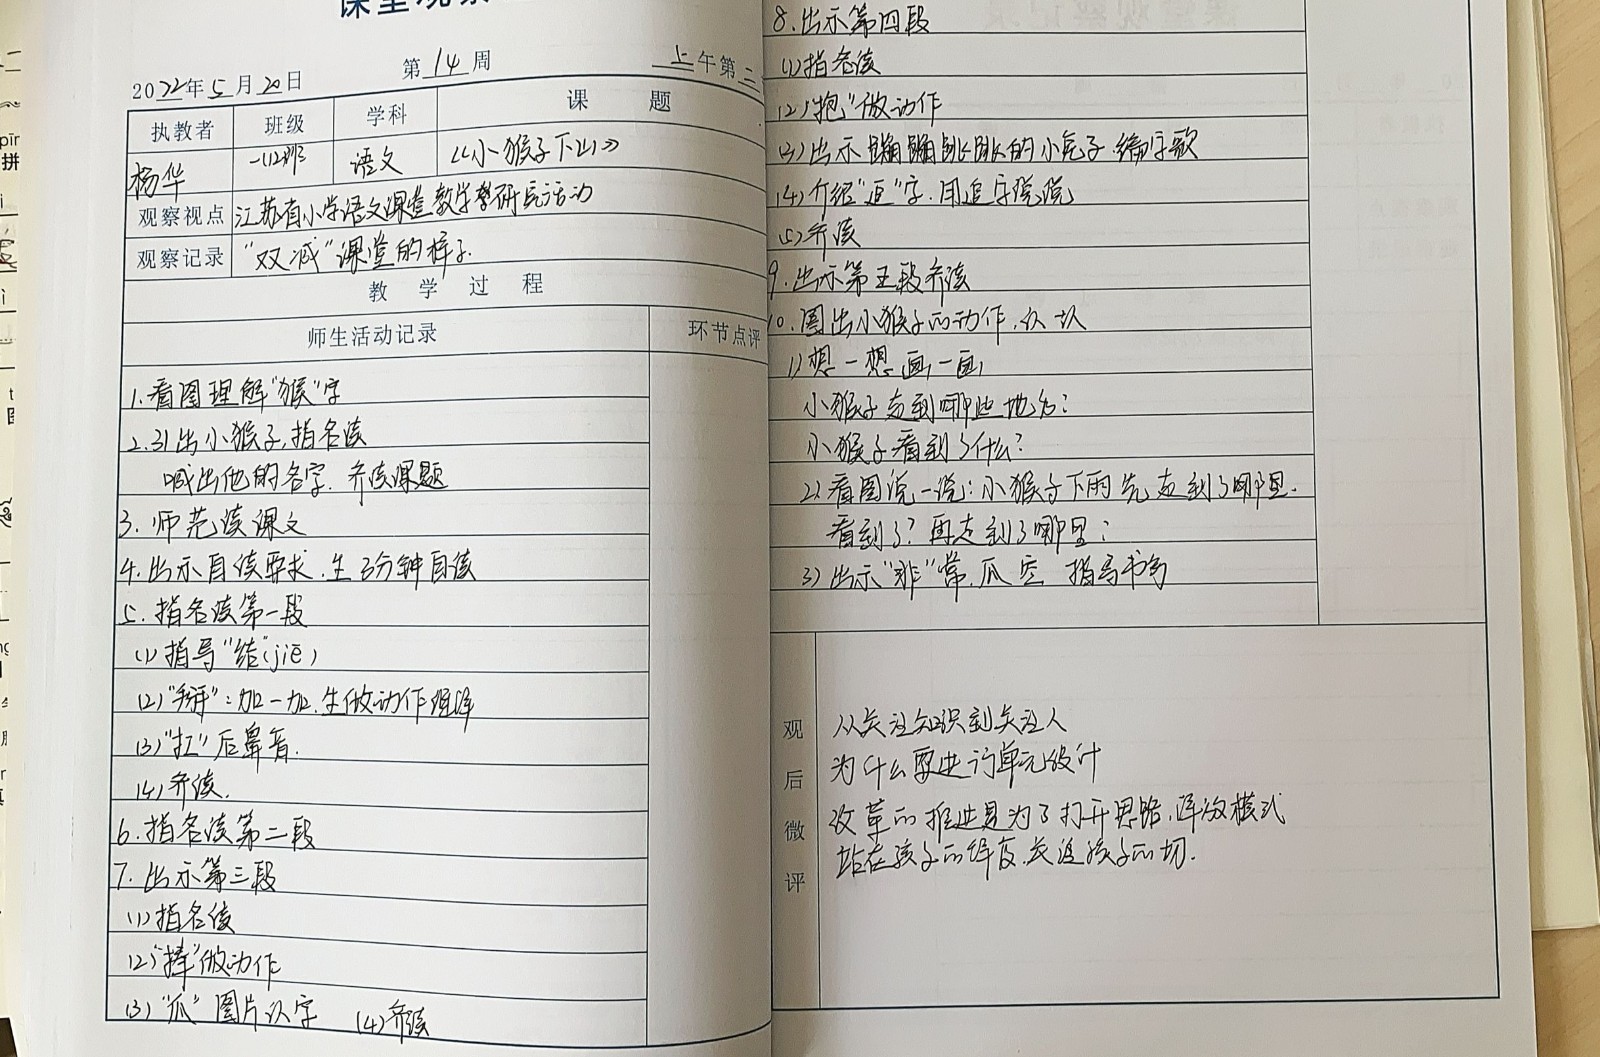 课堂观察
2022年5月20日 第14周 上午第二
执教者 班级 学科 课 题
杨华 一(12)班 语文 《小猴子下山》
观察视点 江苏省小学语文课堂教学教研员活动
观察记录 "双减"课堂的样子.
教 学 过 程
师生活动记录 环节点评
1.看图理解"猴"字
2.引出小猴子,指名读
喊出他的名字.齐读课题
3.师范读课文
4.出示自读要求.生3分钟自读
5.指名读第一段
(1)指导"结"(jiē)
(2)"掰":加一加.生做动作理解
(3)"扛"后鼻音.
(4)齐读.
6.指名读第二段
7.出示第三段
(1)指名读
(2)"捧"做动作
(3)"瓜"图片识字 (4)齐读
8.出示第四段
(1)指名读
(2)"抱"做动作
(3)出示蹦蹦跳跳的小兔子.编字歌
(4)介绍"追"字.用追字说说
(5)齐读
9.出示第五段齐读
10.圈出小猴子的动作.
1)想一想画一画,
小猴子走到哪些地方?
小猴子看到了什么?
2)看图说一说:小猴子下雨先走到了哪里.
看到了?再走到了哪里?
3)出示"非"常.瓜 空 指导书写
观后微评
从关注知识到关注人
为什么要进行单元设计
改革的推进是为了打开思路.解放模式
站在孩子的角度.关注孩子的切.